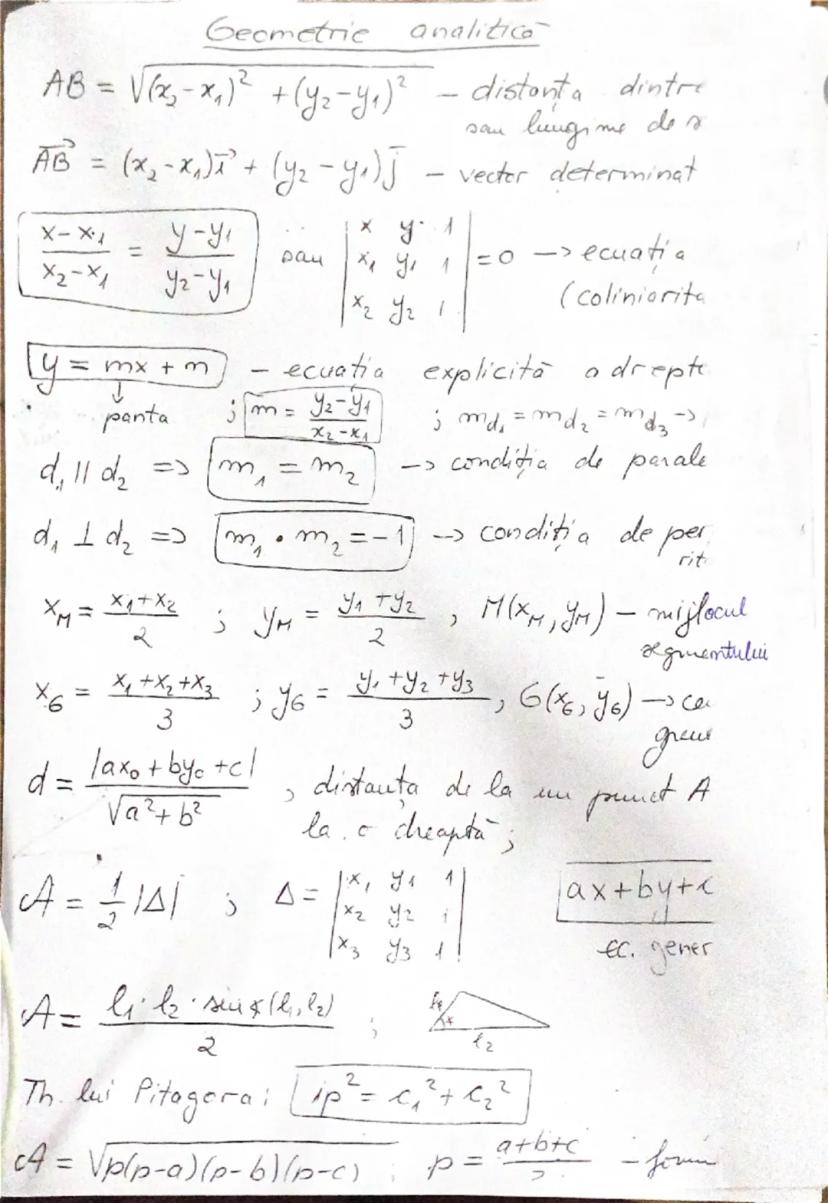 Geometrie analitică
AB = √(x₂-x₁)² + (y₂-y₁)² – distanța dintre
sau lungime de s
AB⃗ = (x₂-x₁)i⃗ + (y₂-y₁)j⃗ – vector determinat
(x-x₁)/(x₂-x₁) = (y-y₁)/(y₂-y₁) sau |x y 1; x₁ y₁ 1; x₂ y₂ 1| = 0 → ecuația
(coliniarita
y = mx + n – ecuația explicită a drepte
↓ panta ; m = (y₂-y₁)/(x₂-x₁) ; m_d₁ = m_d₂ = m_d₃ →
d₁ || d₂ => m₁ = m₂ → condiția de parale
d₁ ⊥ d₂ => m₁ • m₂ = -1 → condiția de per
rit
x_M = (x₁+x₂)/2 ; y_M = (y₁+y₂)/2 , M(x_M, y_M) – mijlocul
segmentului
x_G = (x₁+x₂+x₃)/3 ; y_G = (y₁+y₂+y₃)/3 , G(x_G, y_G) → ce
greu
d = |ax₀+by₀+c|/√(a²+b²) , distanța de la un punct A
la o dreaptă;
A = 1/2 |Δ| ; Δ = |x₁ y₁ 1; x₂ y₂ 1; x₃ y₃ 1| ax+by+c
ec. gener
A = (l₁·l₂·sin∢(l₁,l₂))/2 ; l₁ l₂
Th. lui Pitagora: ip² = c₁² + c₂²
A = √p(p-a)(p-b)(p-c) ; p = (a+b+c)/2 – form